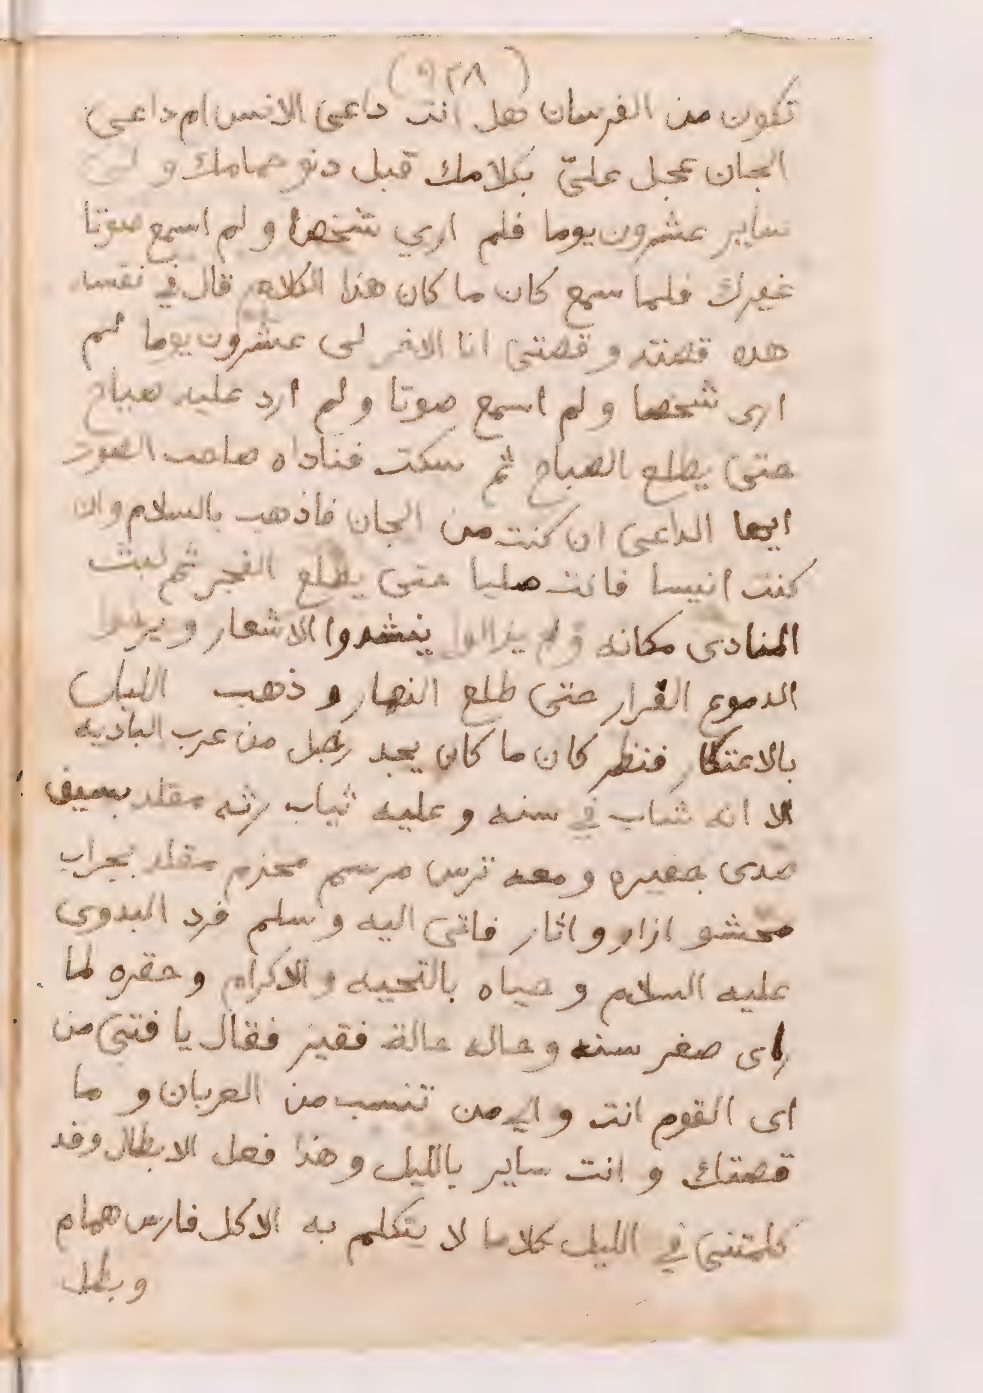 (٩٢٨)
تكون من الفرسان هل انت داعى الانس ام داعى
الجان عجل علىّ بكلامك قبل دنو حمامك و لى
ساير عشرون يوما فلم ارى شخصا و لم اسمع صوتا
غيرك فلما سمع كان ما كان هذا الكلام قال في نفسه
هده قصته و قصتى انا الاخر لى عشرون يوما لم
ارى شخصا و لم اسمع صوتا و لم ارد عليه صباح
حتى يطلع الصباح ثم سكت فناداه صاحب الصوت
ايها الداعى ان كنت من الجان فاذهب بالسلام وان
كنت انيسا فانت مليا حتى يطلع الفجر ثم لبث
المنادى مكانه و لم يزالوا ينشدوا الاشعار و
الدموع الغزار حتى طلع النهار و ذهب الليل
بالاعتكار فنظر كان ما كان يجد رجل من عرب الباديه
الا انه شاب في سنه و عليه ثياب رثه مقلد بسيف
صدى جفيره و معه ترس مرسم مخزم مقلد بجراب
محشو ازار و اثار فاتى اليه و سلم فرد البدوى
عليه السلام و حياه بالتحيه و الاكرام و حقره لما
راى صغر سنه و حاله حالة فقير فقال يا فتى من
اى القوم انت و الى من تنسب من العربان و ما
قصتك و انت ساير بالليل و هذا فعل الابطال وقد
كلمتنى في الليل كلاما لا يتكلم به الا كل فارس همام
و بطل